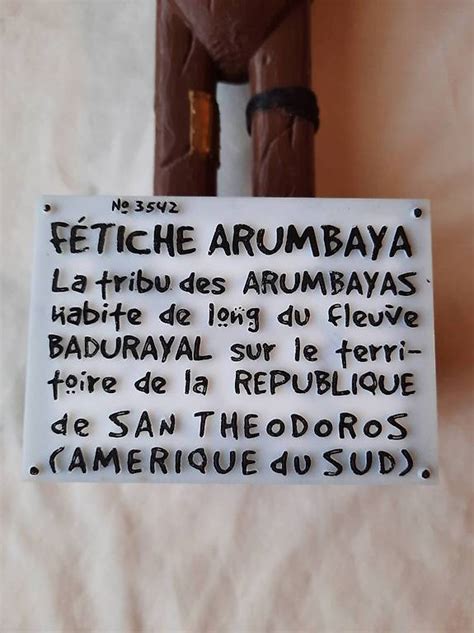 No 3542
FÉTICHE ARUMBAYA
La tribu des ARUMBAYAS
habite de long du fleuve
BADURAYAL sur le terri-
toire de la REPUBLIQUE
de SAN THEODOROS
(AMERIQUE du SUD)